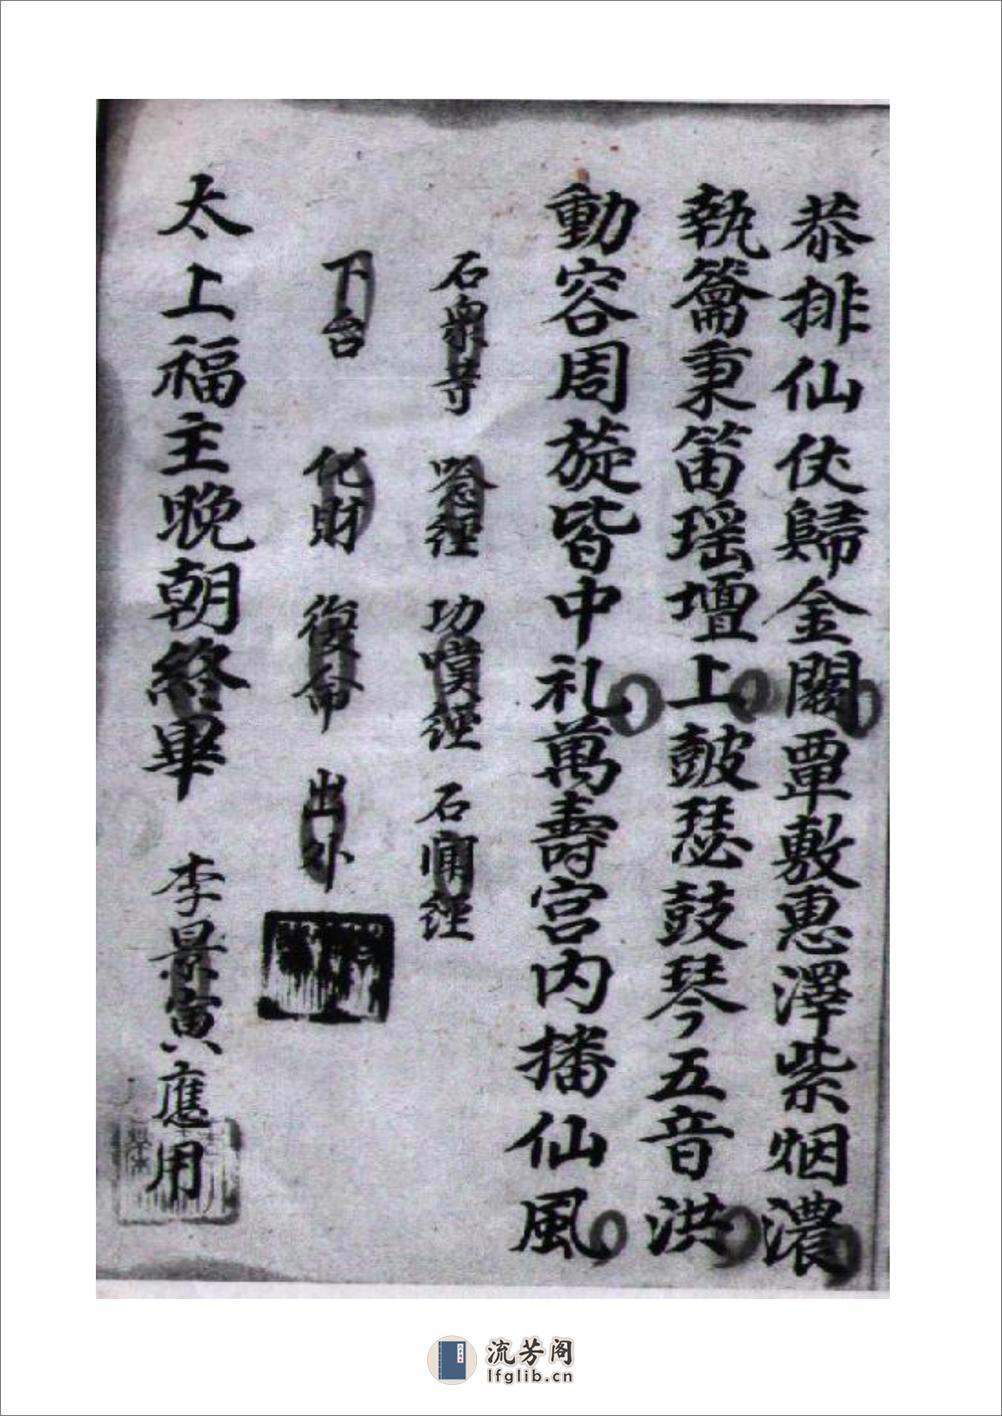 恭排仙伏歸金闕覃敷惠澤紫烟濃
執籥秉笛瑶壇上鼓瑟鼓琴五音洪
動容周旋皆中礼萬壽宮内播仙風
石泉等 唸經 功嘆經 石聞經
下台 化財 復命 出外
太上福主晚朝終畢 李景寅應用
流芳阁
lfglib.cn